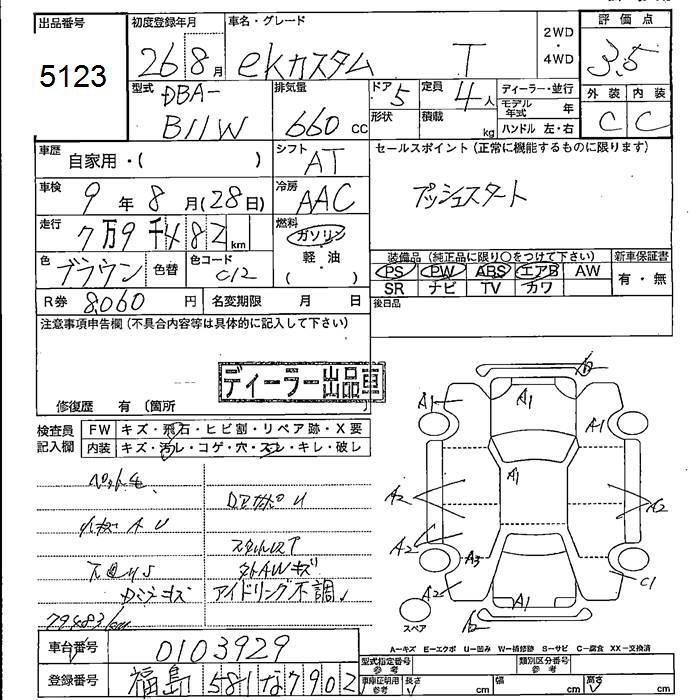 出品番号 初度登録年月 車名・グレード 2WD・4WD 評価点
5123 26 8月 eKカスタム T 3.5
型式 DBA-B11W 排気量 660cc ドア 5 形状 定員 4人 積載 kg ディーラー・並行 モデル年式 年 ハンドル 左・右 外装 C 内装 C
車歴 自家用・( ) シフト AT セールスポイント(正常に機能するものに限ります)
車検 9年8月(28日) 冷房 AAC プッシュスタート
走行 7万9千482km 燃料 ガソリン・軽・油 ( )
色 ブラウン 色替 色コード C12 装備品(純正品に限り○をつけて下さい) 新車保証書
PS PW ABS エアB AW 有・無
SR ナビ TV カワ
R券 8,060円 名変期限 月 日 後日品
注意事項申告欄(不具合内容等は具体的に記入して下さい)
ディーラー出品車
修復歴 有(箇所
検査員記入欄 FW キズ・飛石・ヒビ割・リペア跡・X要
内装 キズ・汚レ・コゲ・穴・スレ・キレ・破レ
ペット毛
アイドリング不調
A1 A1 A1 A1 A2 A2 A2 A3 A2 A1 C1
スペア
A-キズ E-エクボ U-凹み W-補修跡 S-サビ C-腐食 XX-交換済
車台番号 0103929 型式指定番号 参考 類別区分番号 参考
登録番号 福島 581 な 7902 車庫証明用 参考 長さ cm 幅 cm 高さ cm